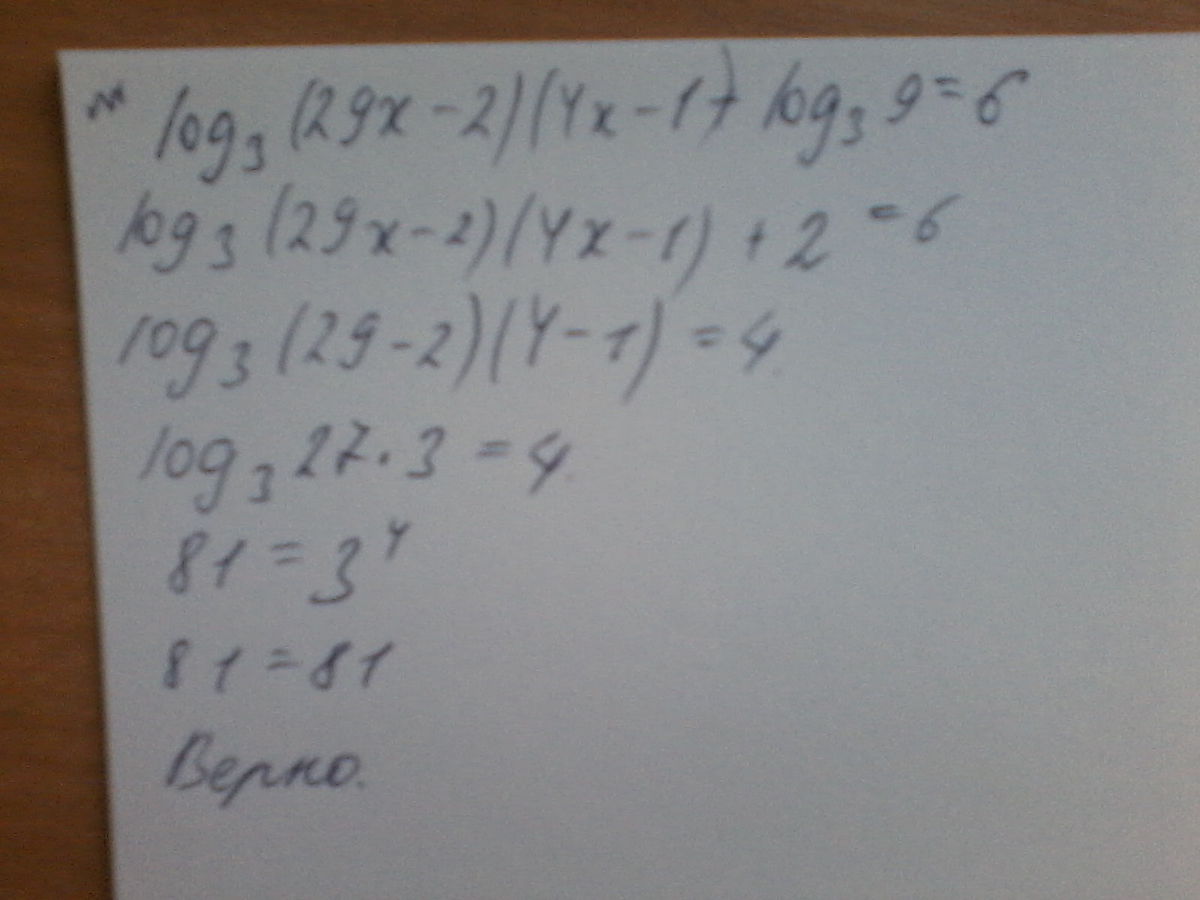 log₃ (29x - 2)(4x - 1) + log₃ 9 = 6
log₃ (29x - 2)(4x - 1) + 2 = 6
log₃ (29 - 2)(4 - 1) = 4
log₃ 27 · 3 = 4
81 = 3⁴
81 = 81
Верно.